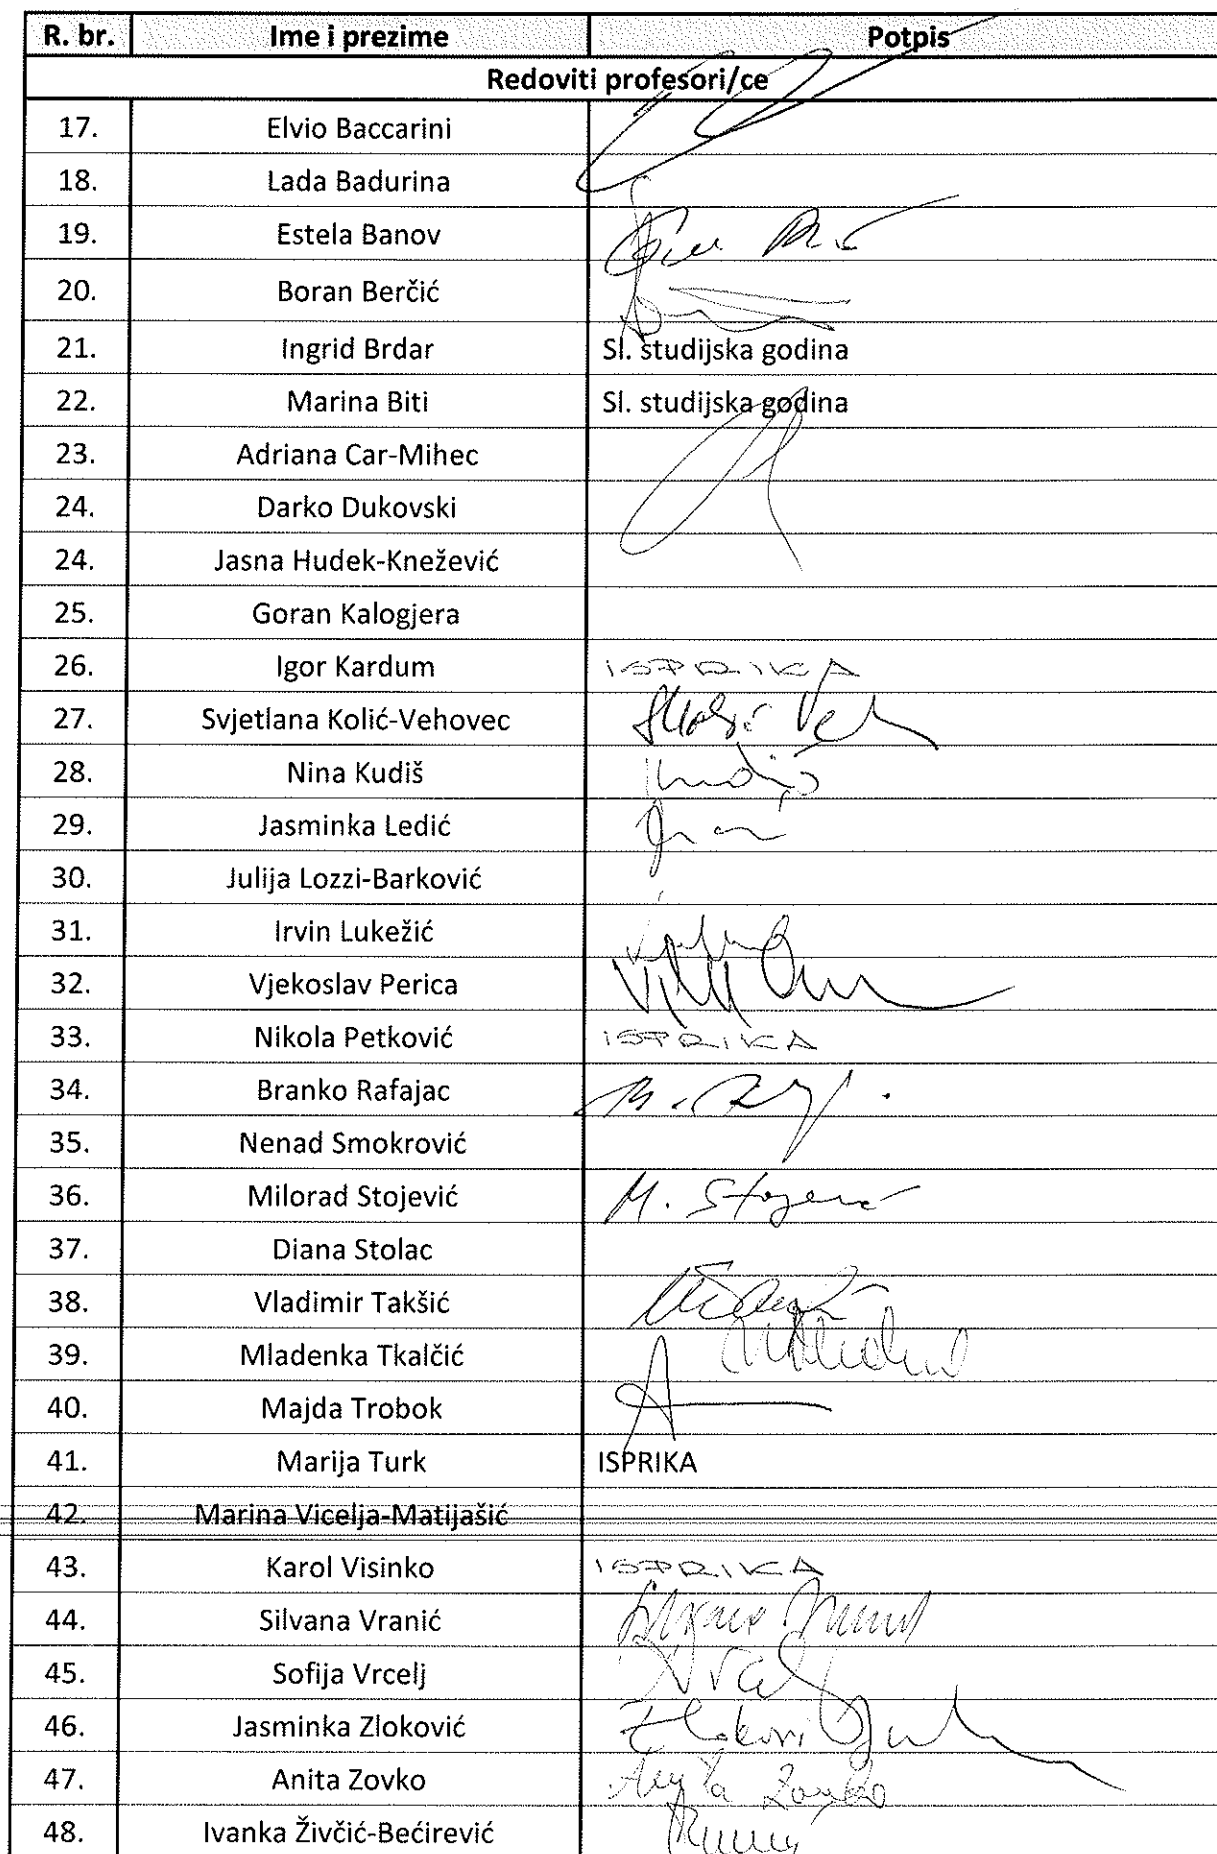 R. br. Ime i prezime Potpis
Redoviti profesori/ce
17. Elvio Baccarini
18. Lada Badurina
19. Estela Banov
20. Boran Berčić
21. Ingrid Brdar Sl. studijska godina
22. Marina Biti Sl. studijska godina
23. Adriana Car-Mihec
24. Darko Dukovski
24. Jasna Hudek-Knežević
25. Goran Kalogjera
26. Igor Kardum ISPRIKA
27. Svjetlana Kolić-Vehovec
28. Nina Kudiš
29. Jasminka Ledić
30. Julija Lozzi-Barković
31. Irvin Lukežić
32. Vjekoslav Perica
33. Nikola Petković ISPRIKA
34. Branko Rafajac
35. Nenad Smokrović
36. Milorad Stojević M. Stojević
37. Diana Stolac
38. Vladimir Takšić
39. Mladenka Tkalčić
40. Majda Trobok
41. Marija Turk ISPRIKA
42. Marina Vicelja-Matijašić
43. Karol Visinko ISPRIKA
44. Silvana Vranić
45. Sofija Vrcelj
46. Jasminka Zloković
47. Anita Zovko Anita Zovko
48. Ivanka Živčić-Bećirević